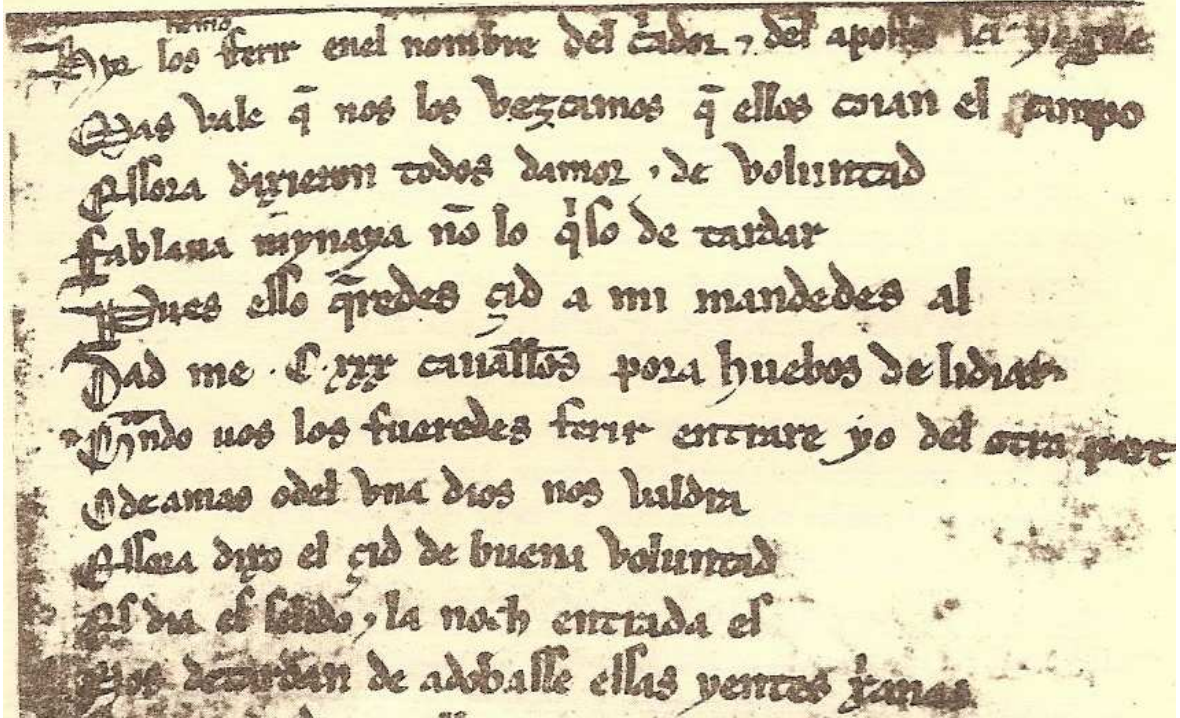 hemos
Hyr los fferir enel nombre del c̓ador ⁊ del apoſtol ſc̄i yague
Mas vale q̄ nos los vezcamos q̄ ellos cojan el campo
Eſſora dixieron todos damor ⁊ de voluntad
Fablaua mynaya nō lo q̓ſo de tardar
Pues eſſo q̄redes çid a mi mandedes al
Dad me .C.xxx cauałłos pora huebos de lidiar
Qͣndo uos los fueredes ferir entrare yo del otra part
O de amas odel vna dios nos valdra
Eſſora dixo el çid de buena voluntad
Eſ dia eſ ſalido ⁊ la noch entrada eſ
Nos detardan de adobaſſe eſſas yentes xp̓anas